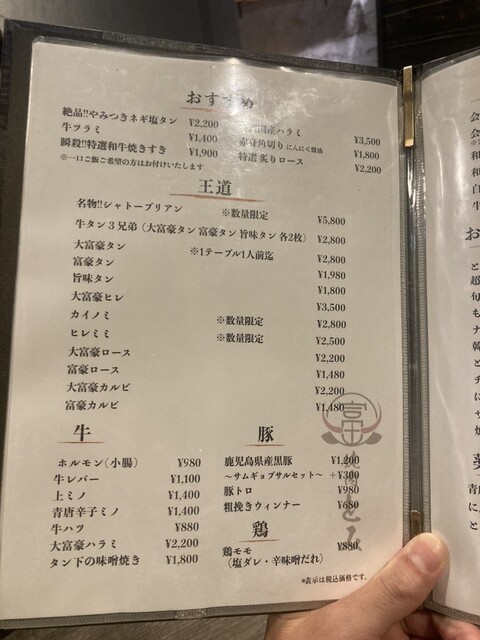 おすすめ
絶品!!やみつきネギ塩タン ¥2,200
牛ツラミ ¥1,400
瞬殺!!特選和牛焼きすき ¥1,900
※一口ご飯ご希望の方はお付けいたします
国産ハラミ ¥3,500
赤身角切り にんにく醤油 ¥1,800
特選 炙りロース ¥2,200
王道
名物!!シャトーブリアン ※数量限定 ¥5,800
牛タン3兄弟(大富豪タン 富豪タン 旨味タン 各2枚) ¥2,800
大富豪タン ※1テーブル1人前迄 ¥2,800
富豪タン ¥1,980
旨味タン ¥1,800
大富豪ヒレ ¥3,500
カイノミ ※数量限定 ¥2,800
ヒレミミ ※数量限定 ¥2,500
大富豪ロース ¥2,200
富豪ロース ¥1,480
大富豪カルビ ¥2,200
富豪カルビ ¥1,480
牛
ホルモン(小腸) ¥980
牛レバー ¥1,100
上ミノ ¥1,400
青唐辛子ミノ ¥1,400
牛ハツ ¥880
大富豪ハラミ ¥2,200
タン下の味噌焼き ¥1,800
豚
鹿児島県産黒豚 ¥1,200
～サムギョプサルセット～ +¥300
豚トロ ¥980
粗挽きウィンナー ¥680
鶏
鶏モモ ¥880
(塩ダレ・辛味噌だれ)
*表示は税込価格です。